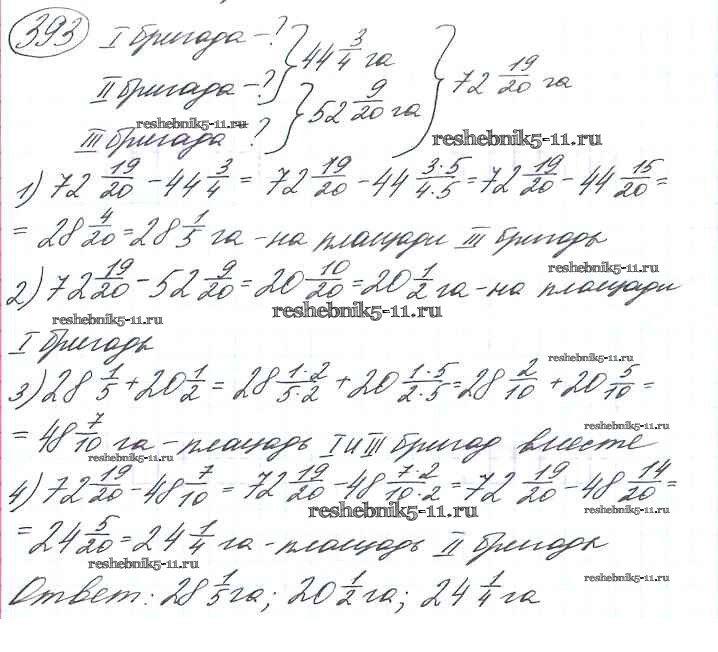 393 I бригада – ?
II бригада – ? } 44 3/4 га } 72 19/20 га
III бригада ? } 52 9/20 га
reshebnik5-11.ru
reshebnik5-11.ru
1) 72 19/20 – 44 3/4 = 72 19/20 – 44 3·5/4·5 = 72 19/20 – 44 15/20 =
= 28 4/20 = 28 1/5 га – на площади III бригады
reshebnik5-11.ru
2) 72 19/20 – 52 9/20 = 20 10/20 = 20 1/2 га – на площади
reshebnik5-11.ru
reshebnik5-11.ru
I бригады
reshebnik5-11.ru
3) 28 1/5 + 20 1/2 = 28 1·2/5·2 + 20 1·5/2·5 = 28 2/10 + 20 5/10 =
reshebnik5-11.ru
= 48 7/10 га – площадь I и III бригад вместе
reshebnik5-11.ru
4) 72 19/20 – 48 7/10 = 72 19/20 – 48 7·2/10·2 = 72 19/20 – 48 14/20 =
reshebnik5-11.ru
reshebnik5-11.ru
= 24 5/20 = 24 1/4 га – площадь II бригады
reshebnik5-11.ru
reshebnik5-11.ru
reshebnik5-11.ru
Ответ: 28 1/5 га; 20 1/2 га; 24 1/4 га